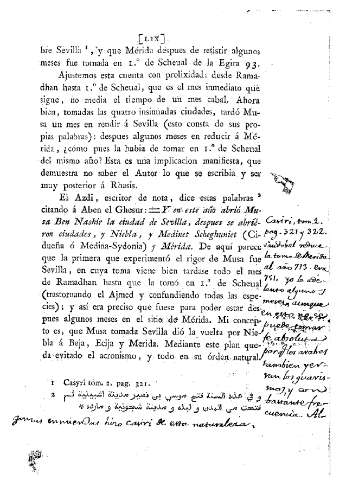 [LIX]
bre Sevilla ¹, y que Mérida despues de resistir algunos
meses fue tomada en 1.º de Scheual de la Egira 93.
Ajustemos esta cuenta con prolixidad: desde Rama-
dhan hasta 1.º de Scheual, que es el mes inmediato que
sigue, no media el tiempo de un mes cabal. Ahora
bien, tomadas las quatro insinuadas ciudades, tardó Mu-
sa un mes en rendir á Sevilla (esto consta de sus pro-
pias palabras): despues algunos meses en reducir á Mé-
rida, ¿cómo pues la habia de tomar en 1.º de Scheual
del mismo año? Esta es una implicacion manifiesta, que
demuestra no saber el Autor lo que se escribia y ser
muy posterior á Rhasis.
El Azdi, escritor de nota, dice estas palabras ²
citando á Aben el Ghesur: =Y en este año abrió Mu-
za Ben Nashir la ciudad de Sevilla, despues se abrie-
ron ciudades, y Niebla, y Medinet Scheghuniet (Ci-
dueña ó Medina-Sydonia) y Mérida. De aquí parece
que la primera que experimentó el rigor de Musa fue
Sevilla, en cuya toma viene bien tardase todo el mes
de Ramadhan hasta que la tomó en 1.º de Scheual
(trastornando el Ajmed y confundiendo todas las espe-
cies); y así era preciso que fuese para poder estar des-
pues algunos meses en el sitio de Mérida. Mi concep-
to es, que Musa tomada Sevilla dió la vuelta por Nie-
bla á Beja, Ecija y Merida. Mediante este plan que-
da evitado el acronismo, y todo en su órden natural.
1 Casyri tom 2. pag. 321.
2 و في هذه السنة فتح موسي بن نصير مدينة اشبيلية ثم
فتحت من المدن و لبلة و مدينة شجونية و ماردة
Casiri, tom. 2.
pag. 321 y 322.
la toma de Merida
al año 713.
aunque
en esta
puede tomar
por los arabes
tambien
mos, y con
bastante fre-
cuencia. Al-
gunas enmiendas hizo Casiri de esta naturaleza.